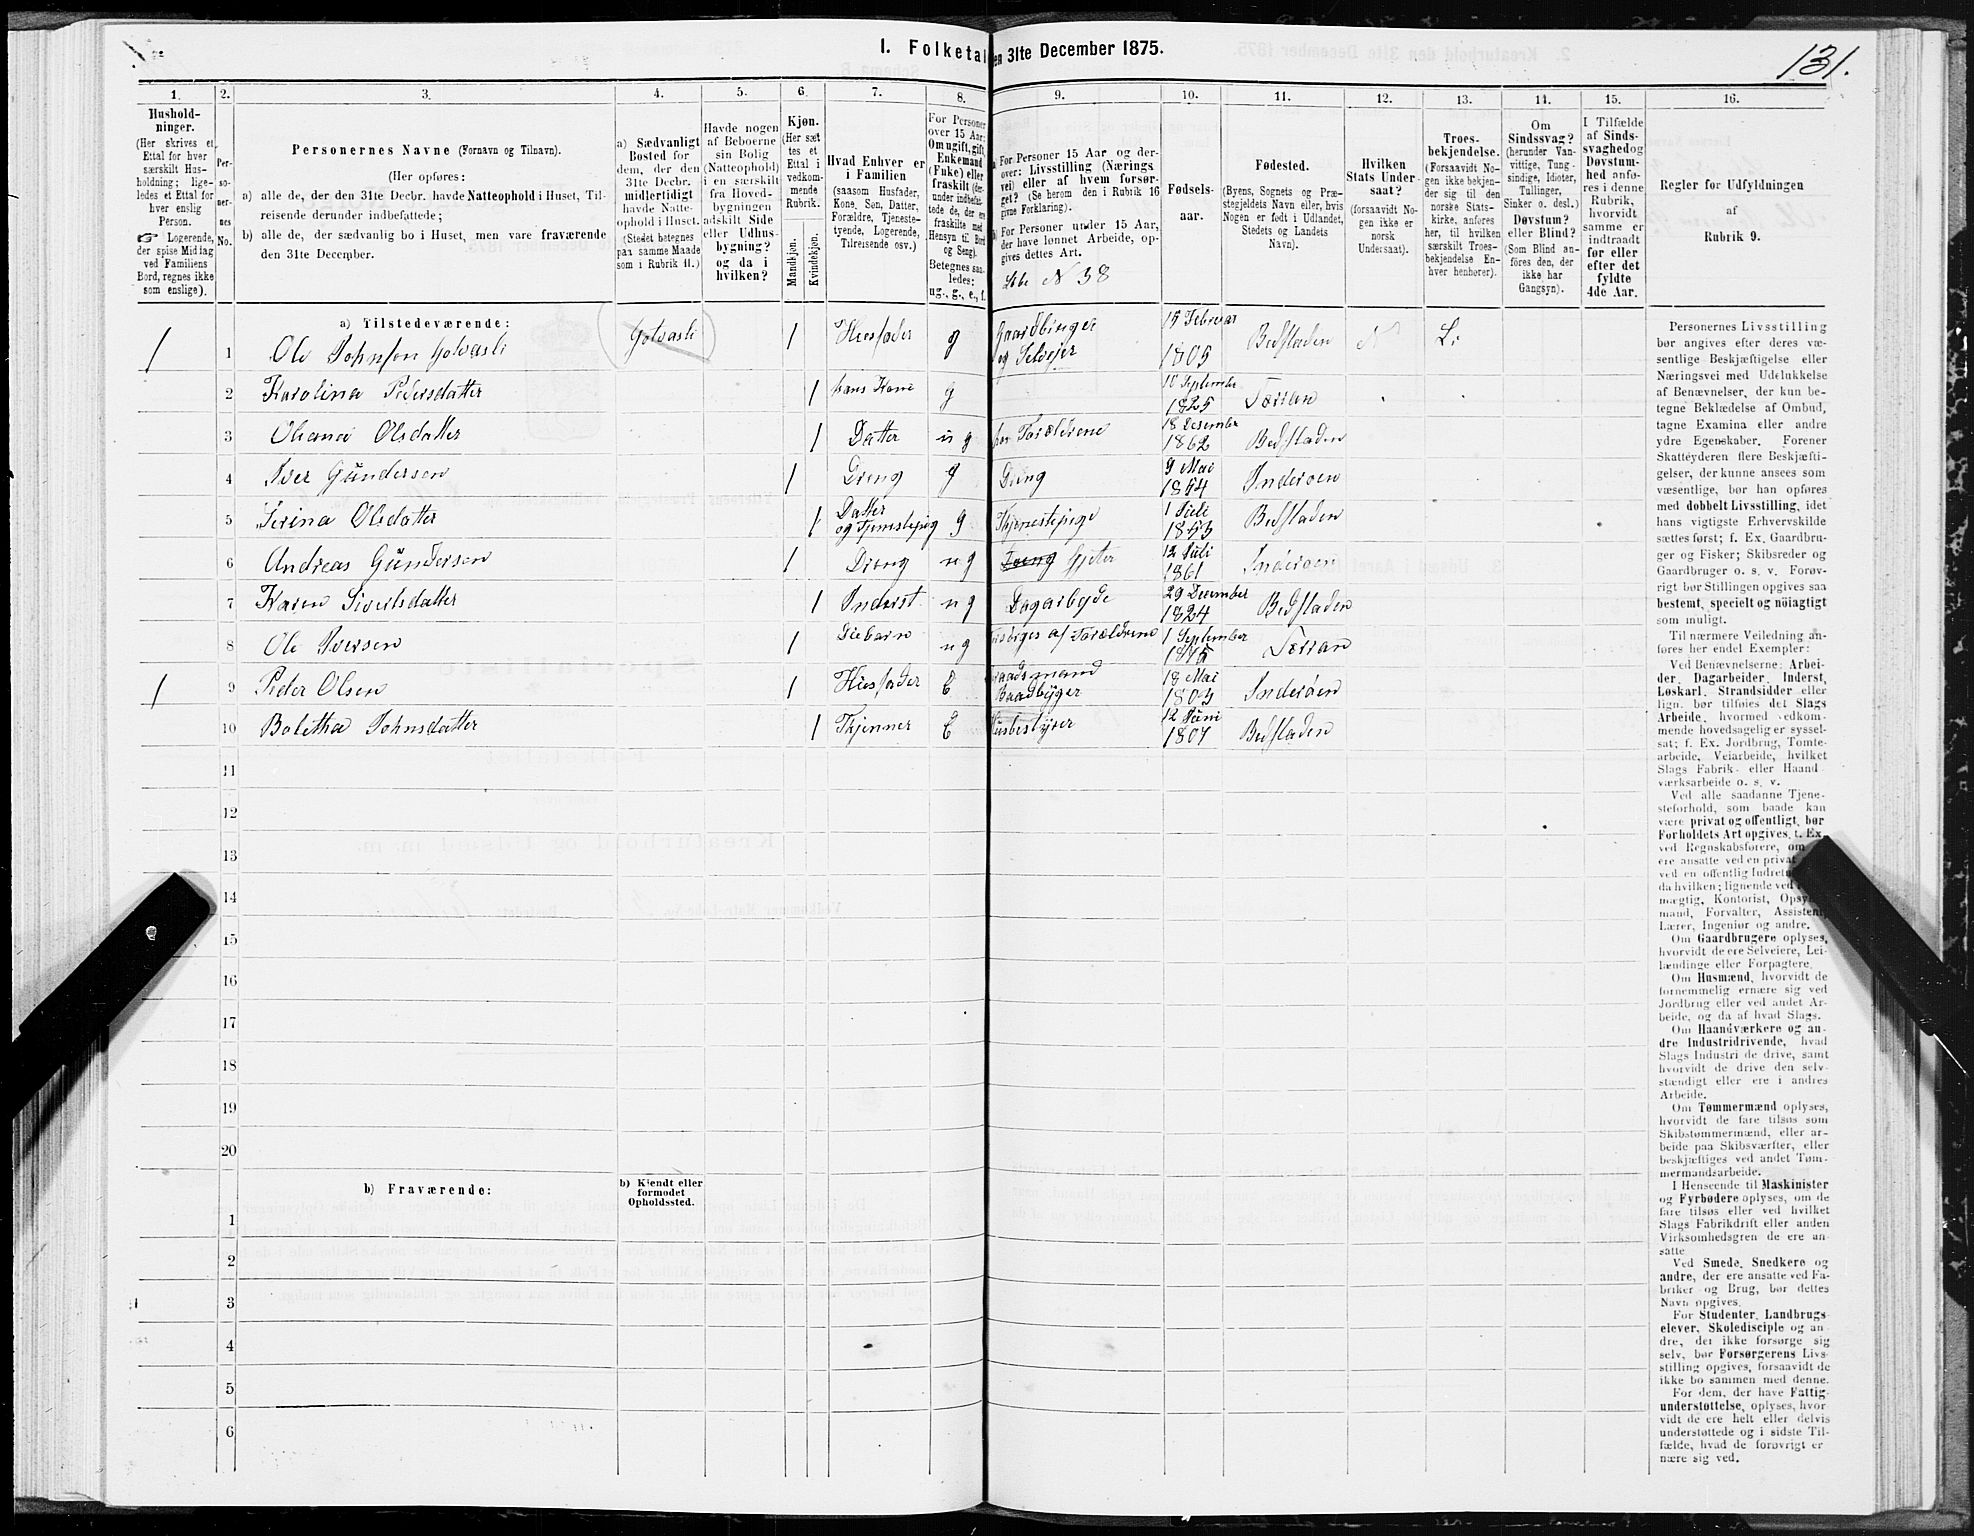 131.
1. Folketal
en 31te December 1875.
1. 2. 3. 4. 5. 6. 7. 8. 9. 10. 11. 12. 13. 14. 15. 16.
Hushold-
ninger.
(Her skrives et
Ettal for hver
særskilt Hus-
holdning; lige-
ledes et Ettal for
hver enslig
Person.
☞ Logerende,
der spise Middag
ved Familiens
Bord, regnes ikke
som enslige).
Per-
so-
ner-
nes
No.
Personernes Navne (Fornavn og Tilnavn).
(Her opføres:
a) alle de, der den 31te Decbr. havde Natteophold i Huset, Til-
reisende derunder indbefattede;
b) alle de, der sædvanlig bo i Huset, men vare fraværende
den 31te December.
a) Sædvanligt
Bosted for
dem, der den
31te Decbr.
midlertidigt
havde Natte-
ophold i Huset.
(Stedet betegnes
paa samme Maade
som i Rubrik 11.)
Havde nogen
af Beboerne
sin Bolig
(Natteophold)
i en særskilt
fra Hoved-
bygningen
adskilt Side
eller Udhus-
bygning?
og da i
hvilken?
Kjøn.
(Her sæt-
tes et
Ettal i
vedkom-
mende
Rubrik.
Mandkjøn.
Kvindekjøn.
Hvad Enhver er
i Familien
(saasom Husfader,
Kone, Søn, Datter,
Forældre, Tjeneste-
tyende, Logerende,
Tilreisende osv.)
For Personer
over 15 Aar:
Om ugift, gift,
Enkemand
(Enke) eller
fraskilt (der-
under indbefat-
tede de, der ere
fraskilte med
Hensyn til Bord
og Seng).
Betegnes saa-
ledes:
ug., g., e., f.
For Personer 15 Aar og der-
over: Livsstilling (Nærings
vei) eller af hvem forsør-
get? (Se herom den i Rubrik 16
givne Forklaring).
For Personer under 15 Aar,
der have lønnet Arbeide, op-
gives dettes Art.
Lbe N 38
Fødsels-
aar.
Fødested.
(Byens, Sognets og Præ-
stegjeldets Navn eller, hvis
Nogen er født i Udlandet,
Stedets og Landets
Navn).
Hvilken
Stats Under-
saat?
(forsaavidt No-
gen ikke er
norsk
Undersaat).
Troes-
bekjendelse.
(Forsaavidt No-
gen ikke bekjen-
der sig til den
norske Stats-
kirke, anføres
her, til hvilken
særskilt Troes-
bekjendelse En-
hver henhører).
Om
Sindssvag?
(herunder Van-
vittige, Tung-
sindige, Idioter,
Tullinger,
Sinker o. desl.)
Døvstum?
eller Blind?
(Som Blind an-
føres den, der
ikke har
Gangsyn).
I Tilfælde
af Sinds-
svaghed og
Døvstum-
hed anfø-
res i denne
Rubrik,
hvorvidt
samme er
indtraadt
før eller
efter det
fyldte
4de Aar.
Regler for Udfyldningen
af
Rubrik 9.
a) Tilstedeværende:
1 1 Ole Johnsen Golvasli Golvasli 1 Huusfader g Gaardbruger og Selvejer 15 Februar 1805 Bedstaden N L.
2 Karolina Pedersdatter 1 hans Kone g 10 September 1825 Værran
3 Olsdatter 1 Datter ug Forældrene 18 Desember 1862 Bedstaden
4 Iver Gündersen 1 Dreng g Dreng 9 Mai 1854 Inderøen
5 Serina Olsdatter 1 Datter og Tjenestepig g Tjenestepige 1 Juli 1853 Bedstaden
6 Andreas Gündersen 1 Dreng ug Dreng Gjeter 12 Juli 1861 Inderøen
7 Karen Sivertsdatter 1 Inderst ug Dagarbejde 29 December 1824 Bedstaden
8 Ole Iversen 1 Diebarn ug af Forældrene 1 September 1875 Værran
1 9 Peder Olsen 1 Huusfader E Baadbyger 18 Mai 1803 Inderøen
10 Boletha Johnsdatter 1 Tjenner E Husbestyrer 12 Juni 1807 Bedstaden
11
12
13
14
15
16
17
18
19
20
b) Fraværende:
b) Kjendt eller
formodet
Opholdssted.
1
2
3
4
5
6
Personernes Livsstilling
bør angives efter deres væ-
sentlige Beskjæftigelse eller
Næringsvei med Udelukkelse
af Benævnelser, der kun be-
tegne Beklædelse af Ombud,
tagne Examina eller andre
ydre Egenskaber. Forener
Skatteyderen flere Beskjæfti-
gelser, der kunne ansees som
væsentlige, bør han opføres
med dobbelt Livsstilling, idet
hans vigtigste Erhvervskilde
sættes først; f. Ex. Gaardbru-
ger og Fisker; Skibsreder og
Gaardbruger o. s. v. Forøv-
rigt bør Stillingen opgives saa
bestemt, specielt og nöiagtigt
som muligt.
Til nærmere Veiledning an-
føres her endel Exempler:
Ved Benævnelserne: Arbei-
der, Dagarbeider, Inderst,
Løskarl, Strandsidder eller
lign. bør tilføies det Slags
Arbeide, hvormed vedkom-
mende hovedsagelig er syssel-
sat; f. Ex. Jordbrug, Tomte-
arbeide, Veiarbeide, hvilket
Slags Fabrik- eller Haand-
værksarbeide o. s. v.
Ved alle saadanne Tjene-
steforhold, som baade kan
være privat og offentligt, bør
Forholdets Art opgives, f. Ex.
ved Regnskabsførere, om
ere ansatte ved en privat
ved en offentlig Indret
da hvilken; lignende ved
mægtig, Kontorist, Opsy
mand, Forvalter, Assistent,
Lærer, Ingeniør og andre.
Om Gaardbrugere oplyses,
hvorvidt de ere Selveiere, Lei-
lændinge eller Forpagtere.
Om Husmænd, hvorvidt de
fornemmelig ernære sig ved
Jordbrug eller ved andet Ar-
beide, og da af hvad Slags.
Om Haandværkere og an-
dre Industridrivende, hvad
Slags Industri de drive, samt
hvorvidt de drive den selv-
stændigt eller ere i andres
Arbeide.
Om Tømmermænd oplyses,
hvorvidt de fare tilsøs som
Skibstømmermænd, eller ar-
beide paa Skibsværfter, eller
beskjæftiges ved andet Tøm-
mermandsarbeide.
I Henseende til Maskinister
og Fyrbødere oplyses, om de
fare tilsøs eller ved hvilket
Slags Fabrikdrift eller anden
Virksomhedsgren de ere an-
satte
Ved Smede, Snedkere og
andre, der ere ansatte ved Fa-
briker og Brug, bør dettes
Navn opgives.
For Studenter, Landbrugs-
elever, Skoledisciple og an-
dre, der ikke forsørge sig
selv, bør Forsørgerens Livs-
stilling opgives, forsaavidt de
ikke bo sammen med denne.
For dem, der have Fattig-
understøttelse, oplyses, hvor-
vidt de ere helt eller delvis
understøttede og i sidste Til-
fælde, hvad de forøvrigt er
nære sig ved.